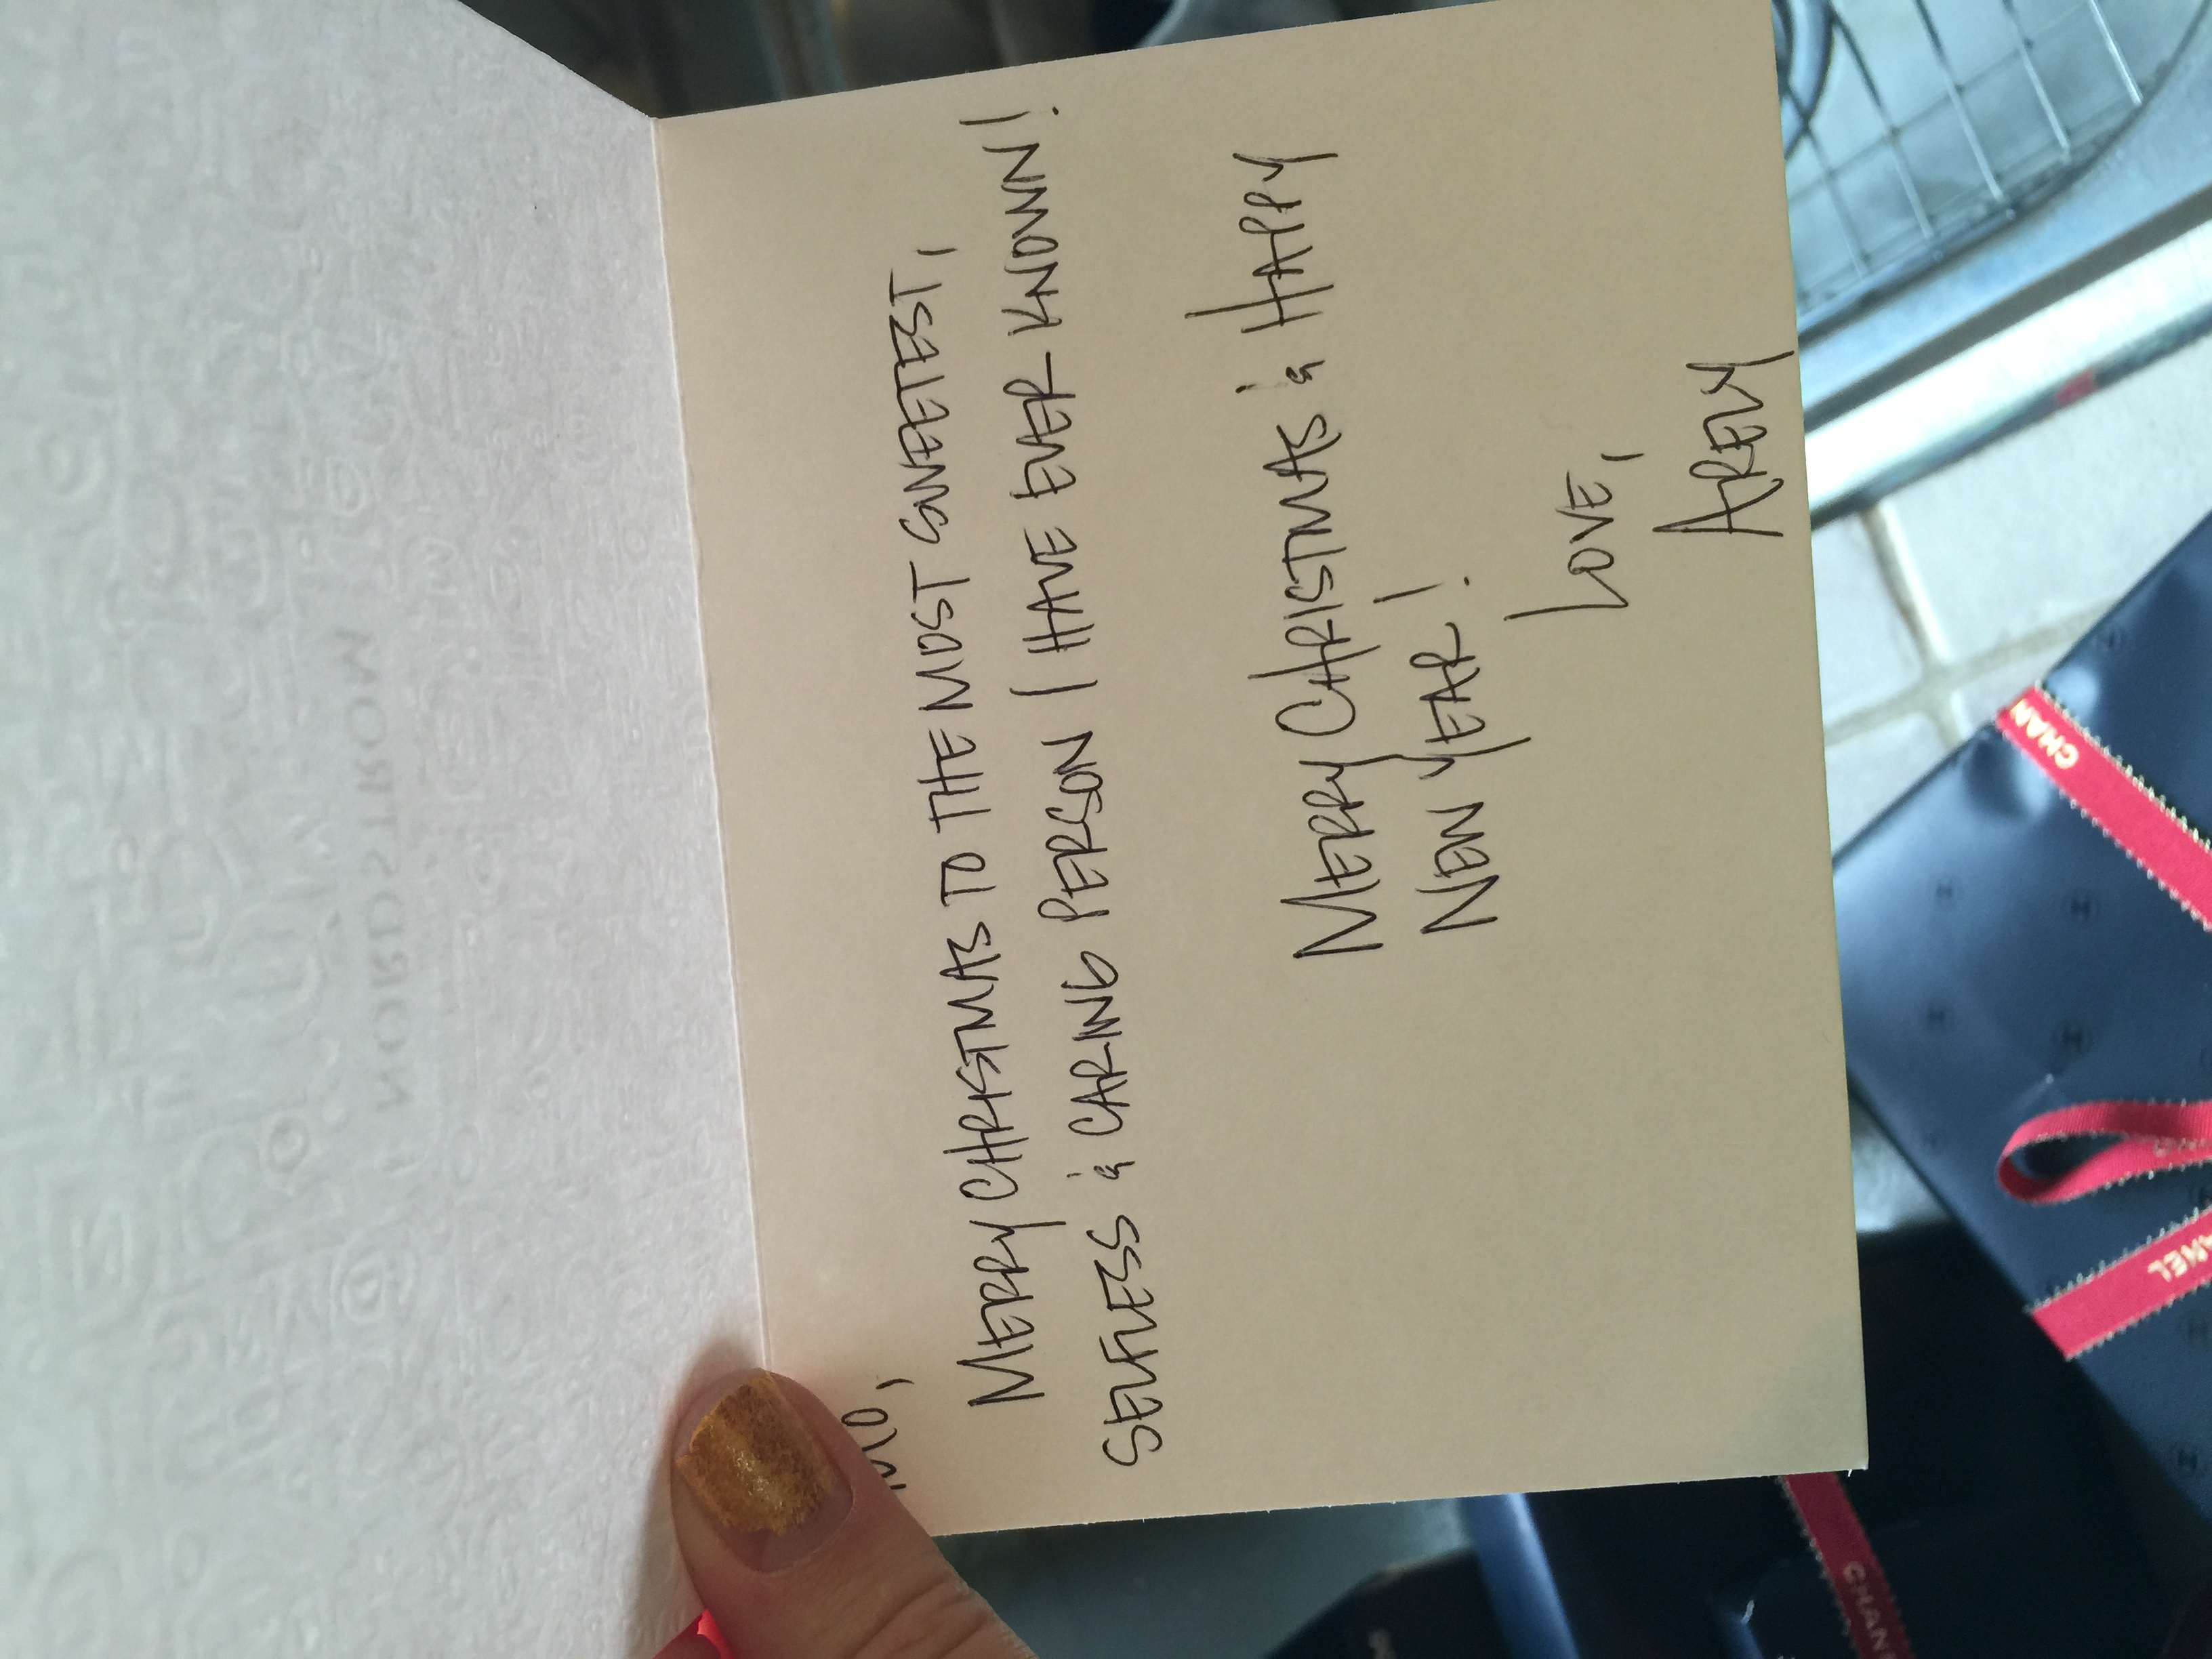 NORDSTROM
Mo,
MERRY CHRISTMAS TO THE MOST SWEETEST,
SELFLESS & CARING PERSON I HAVE EVER KNOWN!
MERRY CHRISTMAS & HAPPY
NEW YEAR!
LOVE,
ARELY
CHAN
CHAN
ANEL